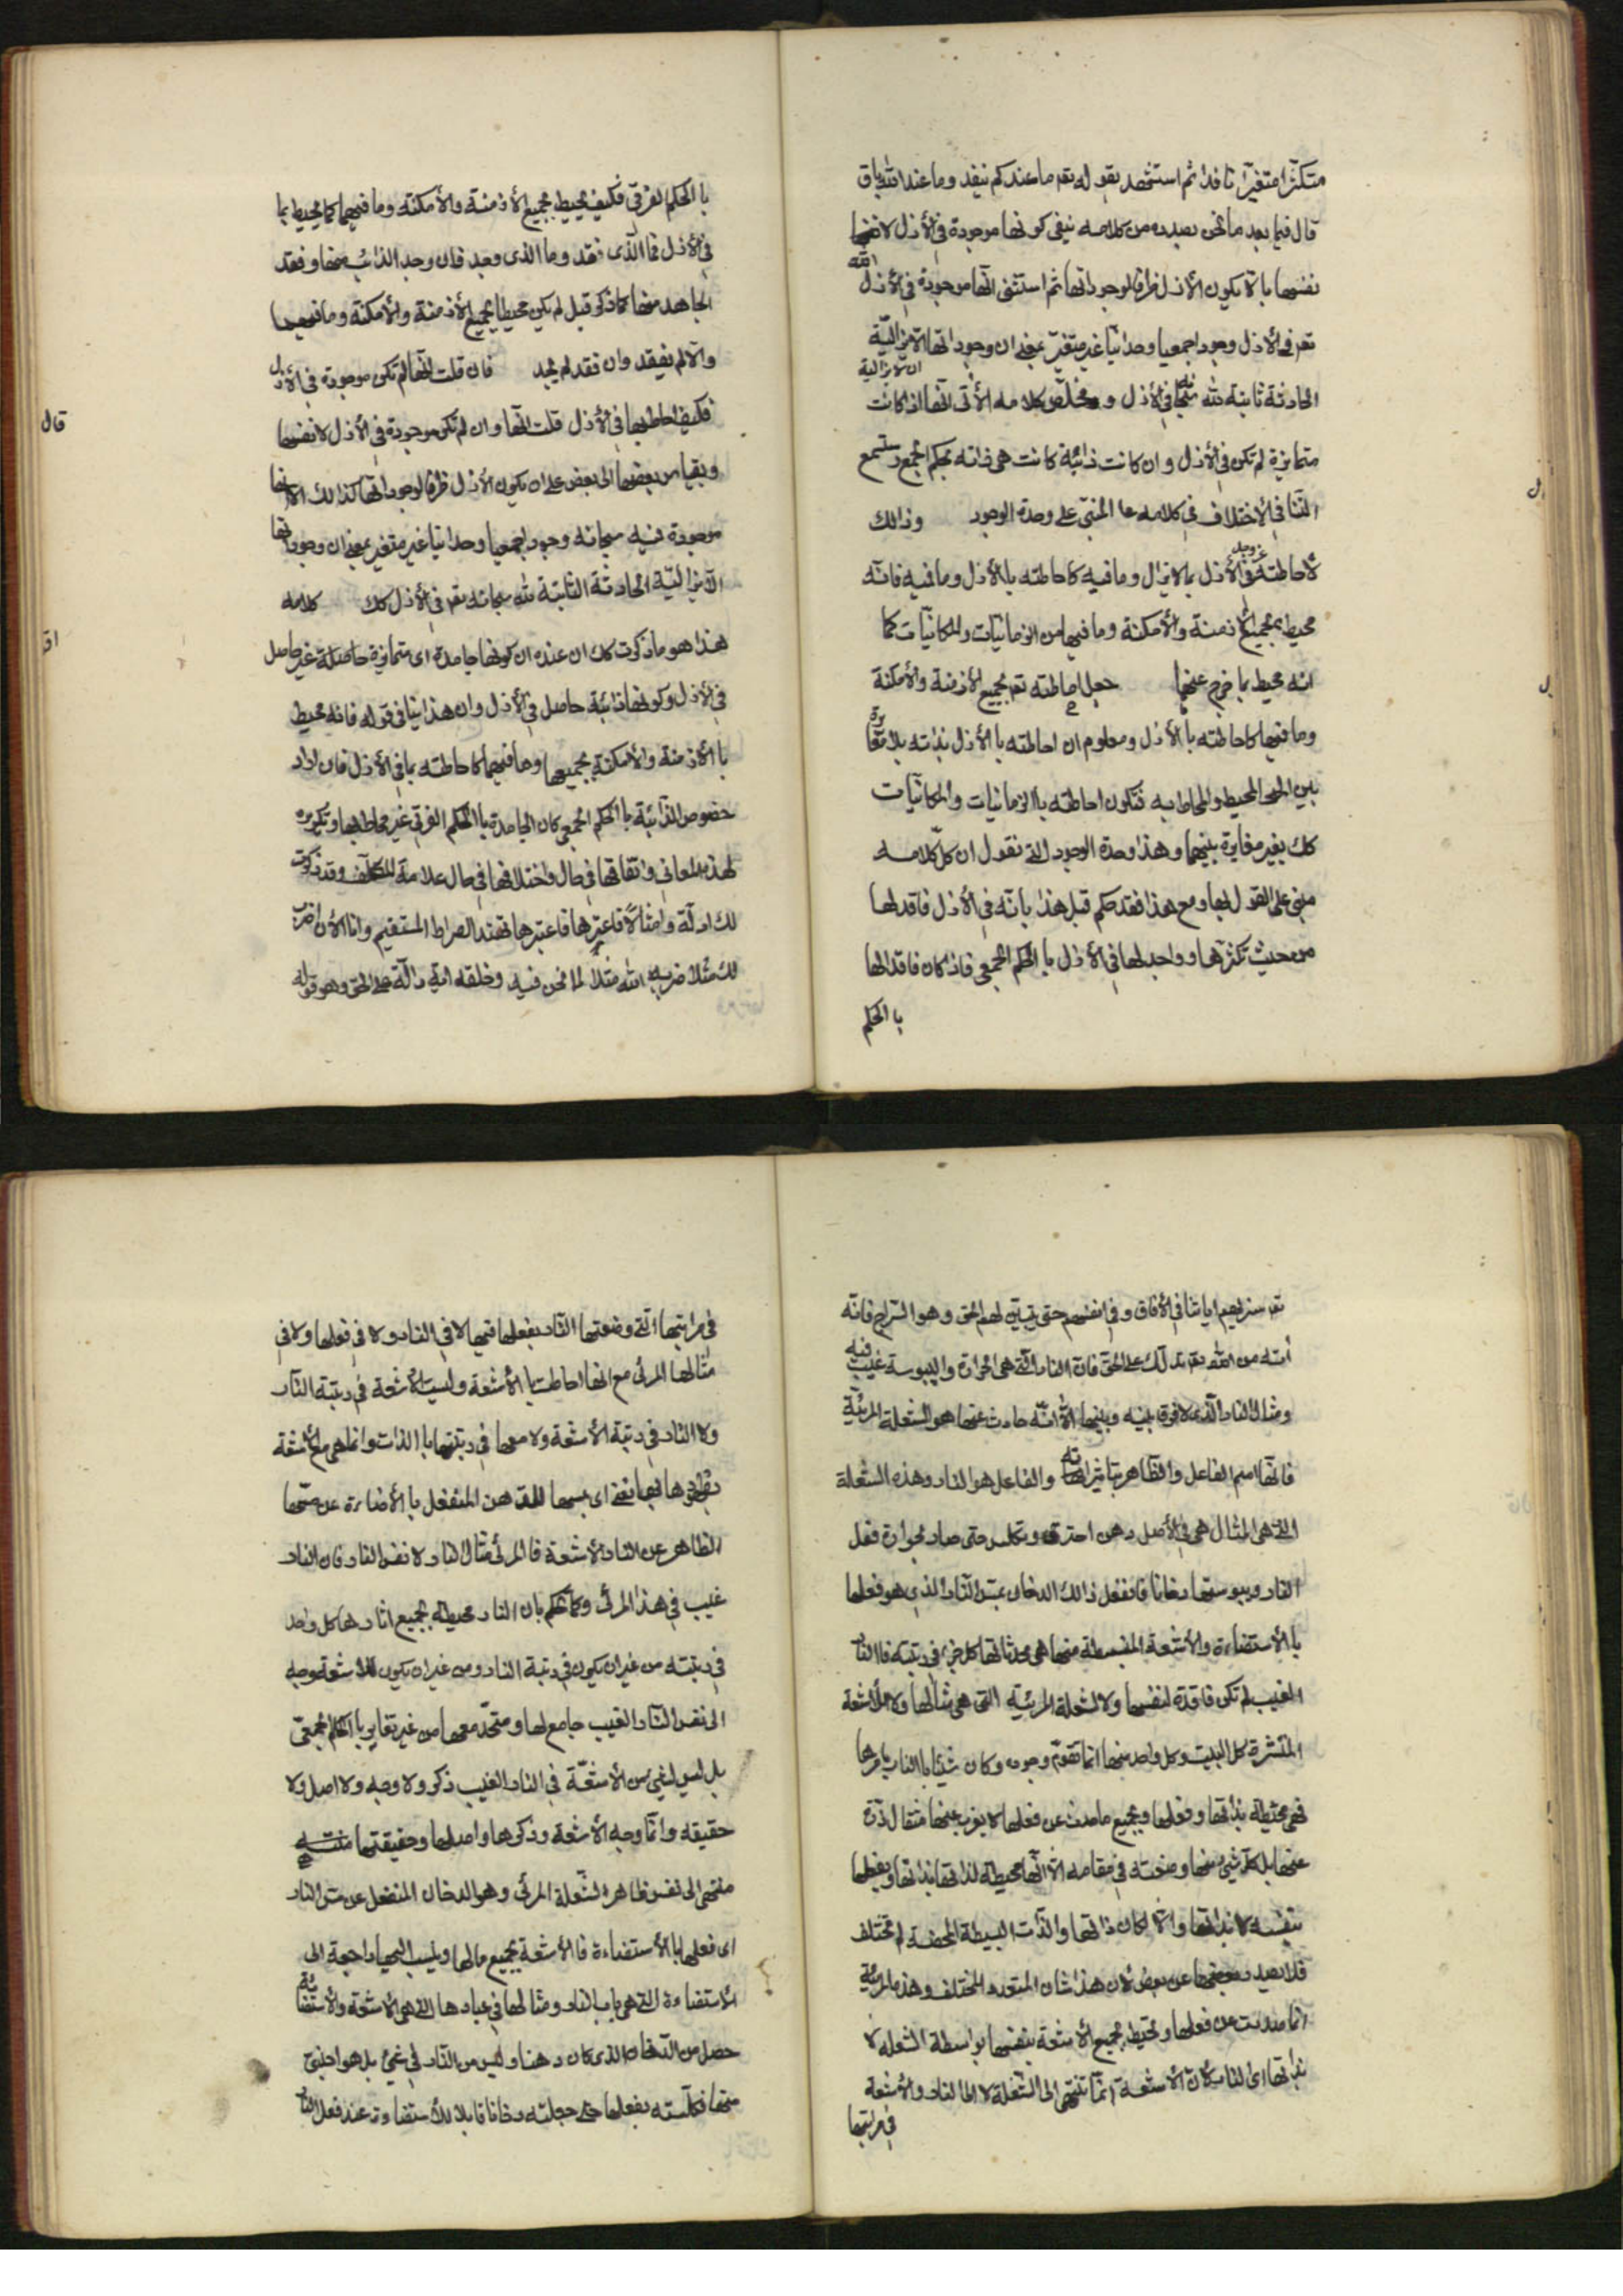 متكثرا متغيرا نافدا ثم استشهد بقوله تعه ما عندكم ينفد وما عند الله باق
قال فيما بعد ما نحن بصدده من كلامه نيفى كونها موجودة فى الأزل لانفسها
نفسها بان يكون الأزل ظرفا لوجوداتها ثم استثنى انها موجودة فى الأزل لله
تعه فى الأزل وجودا جمعيا وحدانيا غير متغير بمعنى ان وجوداتها اللايزالية
الحادثة ثابتة لله سبحانه فى الأزل وملخص كلامه الأتى انها اذا كانت
متمايزة لم تكن فى الأزل وان كانت ذائبة كانت هى ذاته بحكم الجمع وستسمع
التنافى الأختلاف فى كلامه المبنى على وحدة الوجود وذالك
لأحاطته عز وجل فى الأزل بما لايزال وما فيه كاحاطته بالأزل وما فيه فانه
محيط بجميع الأزمنة والأمكنة وما فيها من الزمانيات والمكانيات كما
انه محيط بما خرج عنها جعل احاطته تعه بجميع الأزمنة والأمكنة
وما فيها كاحاطته با الأزل ومعلوم ان احاطته با الأزل بذاته بلا مغايرة
بين المحيط والمحاط به فتكون احاطته با الزمانيات والمكانيات
كك بغير مغايرة بينهما وهذا وحدة الوجود التى نقول ان كل كلامه
مبنى على القول بها ومع هذا فقد حكم قبل هذا بانه فى الأزل فاقد لها
من حيث تكثرها وواجد لها فى الأزل با الحكم الجمعى فاذا كان فاقدا لها
با الحكم
با الحكم الفرقى فكيف يحيط بجميع الأزمنة والأمكنة وما فيهما كما يحيط بما
فى الأزل فما الذى فقد وما الذى وجد فان وجد الذائب منها وفقد
الجامد منها كما ذكر قبل لم يكن محيطا بجميع الأزمنة والأمكنة وما فيهما
والا لم يفقد وان فقد لم يجد فان قلت انها لم تكن موجودة فى الأزل
فكيف احاط بها فى الأزل قلت انها وان لم تكن موجودة فى الأزل لانفسها
وبقياس بعضها الى بعض على ان يكون الأزل ظرفا لوجوداتها كذالك الا انها
موجودة فيه سبحانه وجودا جمعيا وحدانيا غير متغير بمعنى ان وجوداتها
اللايزالية الحادثة الثابتة لله سبحانه تعه فى الأزل كك كلامه
هذا هو ما ذكرت لك ان عنده ان كونها جامدة اى متمايزة حاصلة غير حاصل
فى الأزل وكونها ذائبة حاصل فى الأزل وان هذا ينافى قوله فانه محيط
با الأزمنة والأمكنة بجميعها وما فيهما كاحاطته بما فى الأزل فان اراد
خصوص الذائبة با الحكم الجمعى كان الجامدة با الحكم الفرقى غير محاط بها وتكريره
لهذه المعانى واتفاقها فى حال واختلافها فى حال علامة المتكلف وقد ذكرت
لك ادلة وامثالا فاعتبرها فاعتبرها تهتد الصراط المستقيم وانا الأن اضرب
لك مثلا ضربه الله مثلا لما نحن فيه وخلقه اية دالة على الحق وهو قوله
قال
اق
تعه سنريهم اياتنا فى الأفاق وفى انفسهم حتى يتبين لهم الحق وهو السراج فانه
اية من الله تعه تدلك على الحق فان النار التى هى الحرارة واليبوسة غيب فيه
ومثال النار الذى لا فرق بينه وبينها الا انه حادث عنها هو الشعلة المرئية
فانها اسم الفاعل والظاهر بتاثيراته والفاعل هو النار وهذه الشعلة
التى هى المثال هى فى الأصل دهن احترق وتكلس حتى صار بحرارة فعل
النار ويبوستها دخانا فانفعل ذالك الدخان بمس النار الذى هو فعلها
با الأستضاءة والأشعة المنبسطة منها هى محدثاتها كل جزء فى رتبته فا النار
الغيب لم تكن فاقدة لنفسها ولا لشعلة المرئية التى هى مثالها ولا للأشعة
المنتشرة كل البيت وكل واحد منها انما تقوم وجوده وكان شيئا با النار بامرها
فهى محيطة بذاتها وفعلها وبجميع ما صدر عن فعلها لا يعزب عنها مثقال ذرة
عنها بل كل شئ منها وصفته فى مقامه الا انها محيطة لذاتها بذاتها وبفعلها
بنفسه لا بذاتها والا لكان ذاتها والذات البسيطة المحضة لم تختلف
فلا يصدر بعضها عن بعض لان هذا شان المتعدد المختلف وهذه المرئية
انما صدرت من فعلها وتحيط بجميع الأشعة بنفسها بواسطة الشعلة لا
بذاتها اى النار لان الأشعة انما تنتهى الى الشعلة لا الى النار والأشعة
فى مراتبها
فى مراتبها التى وضعتها النار بفعلها فيها لا فى النار ولا فى فعلها ولا فى
مثالها المرئى مع انها احاطت با الأشعة وليست الأشعة فى رتبة النار
ولا النار فى رتبة الأشعة ولا معها فى رتبتها با الذات وانما هى مع الأشعة
الظاهر عن النار بالأشعة فا المرئى مثال النار لا نفس النار فان النار
غيب فى هذا المرئى وكما تحكم بان النار محيطة بجميع اثارها كل واحد
فى رتبته من غير ان يكون فى رتبة النار ومن غير ان يكون للأشعة وجه
الى نفس النار الغيب جامع لها ومتحد معها من غير تغاير با الحكم الجمعى
بل ليس لشئ من الأشعة فى النار الغيب ذكر ولا وجه ولا اصل ولا
حقيقه وانما وجه الأشعة وذكرها واصلها وحقيقتها منته
منتهى الى نفس ظاهر الشعلة المرئى وهو الدخان المنفعل عن مس النار
اى فعلها با الأستضاءة فا الأشعة بجميع مالها وينسب اليها راجعة الى
الأستضاءة التى هى باب النار ومثالها فى عبادها التى هى الأشعة والأستضائة
حصل من الدخان الذى كان دهنا وليس من النار فى شئ بل هو اجنبى
منها فكلسته بفعلها حتى جعلته دخانا قابلا للأستضاءة عند فعل النار